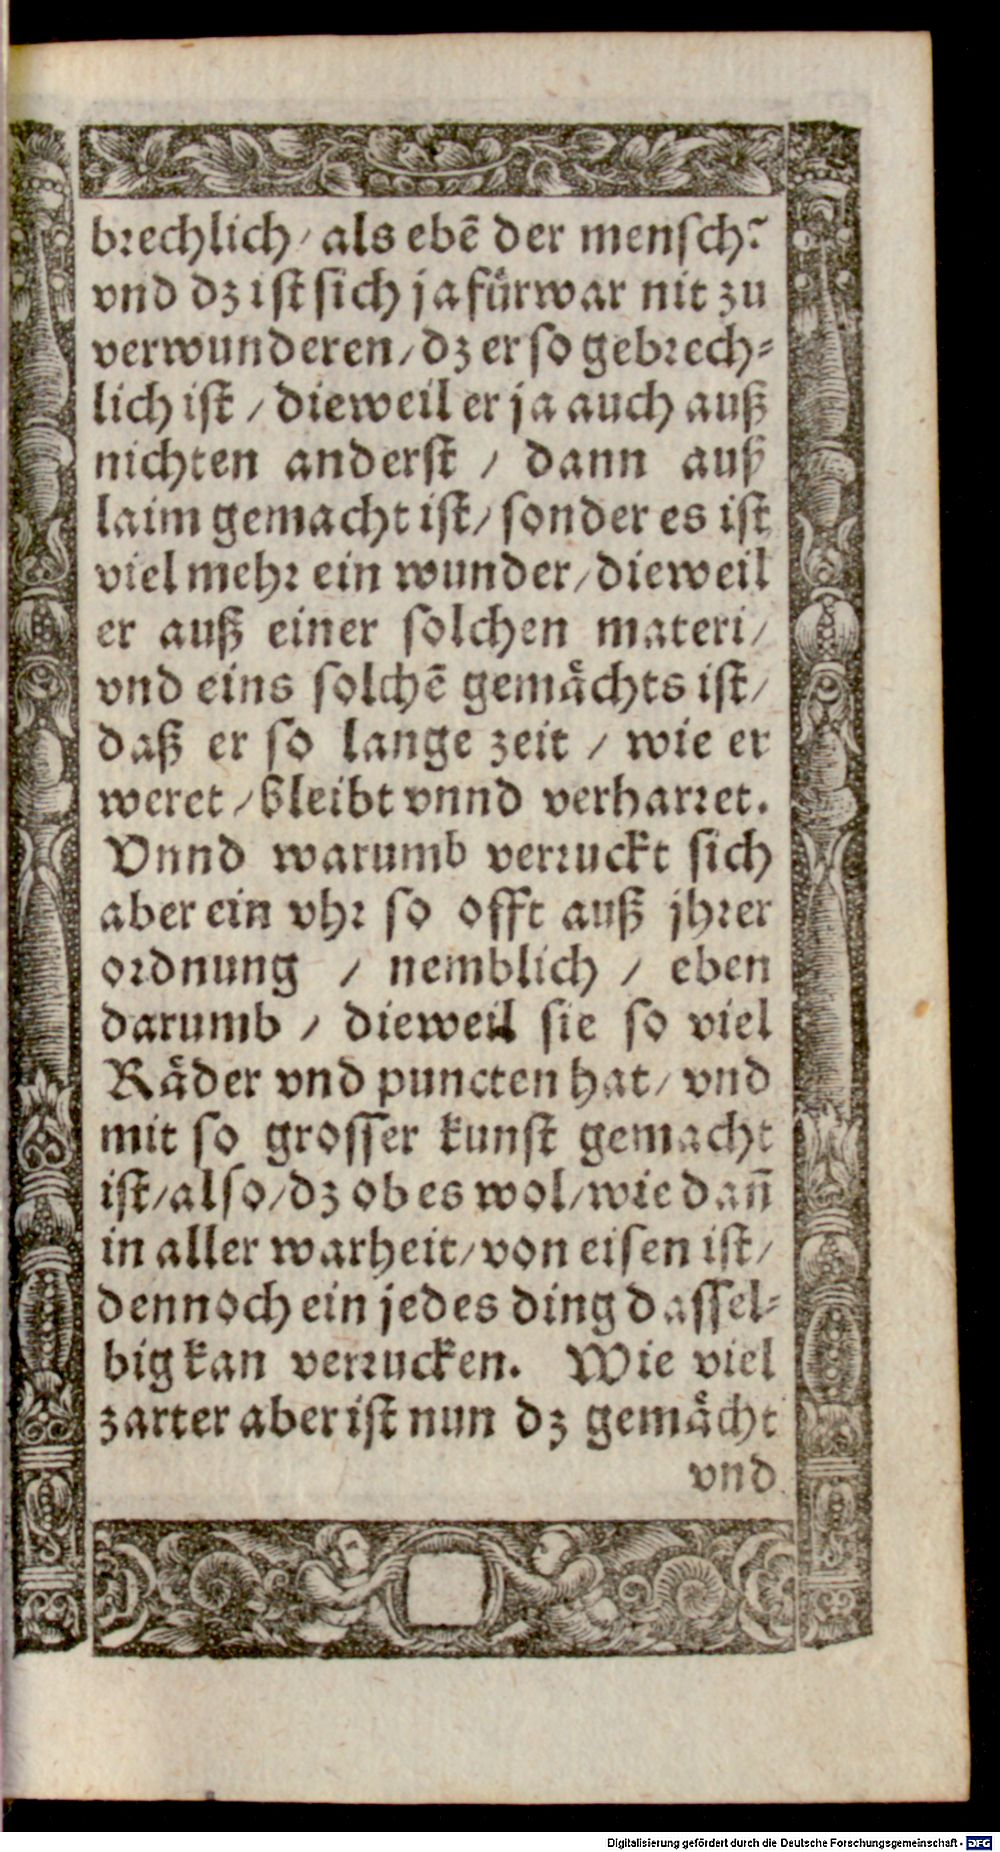 brechlich / als ebē der mensch?
vnd dz ist sich ja fürwar nit zu
verwunderen / dz er so gebrech-
lich ist / dieweil er ja auch auß
nichten anderst / dann auß
laim gemacht ist / sonder es ist
viel mehr ein wunder / dieweil
er auß einer solchen materi /
vnd eins solchē gemächts ist /
daß er so lange zeit / wie er
weret / bleibt vnnd verharret.
Vnnd warumb verruckt sich
aber ein vhr so offt auß jhrer
ordnung / nemblich / eben
darumb / dieweil sie so viel
Räder vnd puncten hat / vnd
mit so grosser kunst gemacht
ist / also / dz ob es wol / wie dañ
in aller warheit / von eisen ist /
dennoch ein jedes ding dassel-
big kan verrucken. Wie viel
zarter aber ist nun dz gemächt
vnd
Digitalisierung gefördert durch die Deutsche Forschungsgemeinschaft - DFG